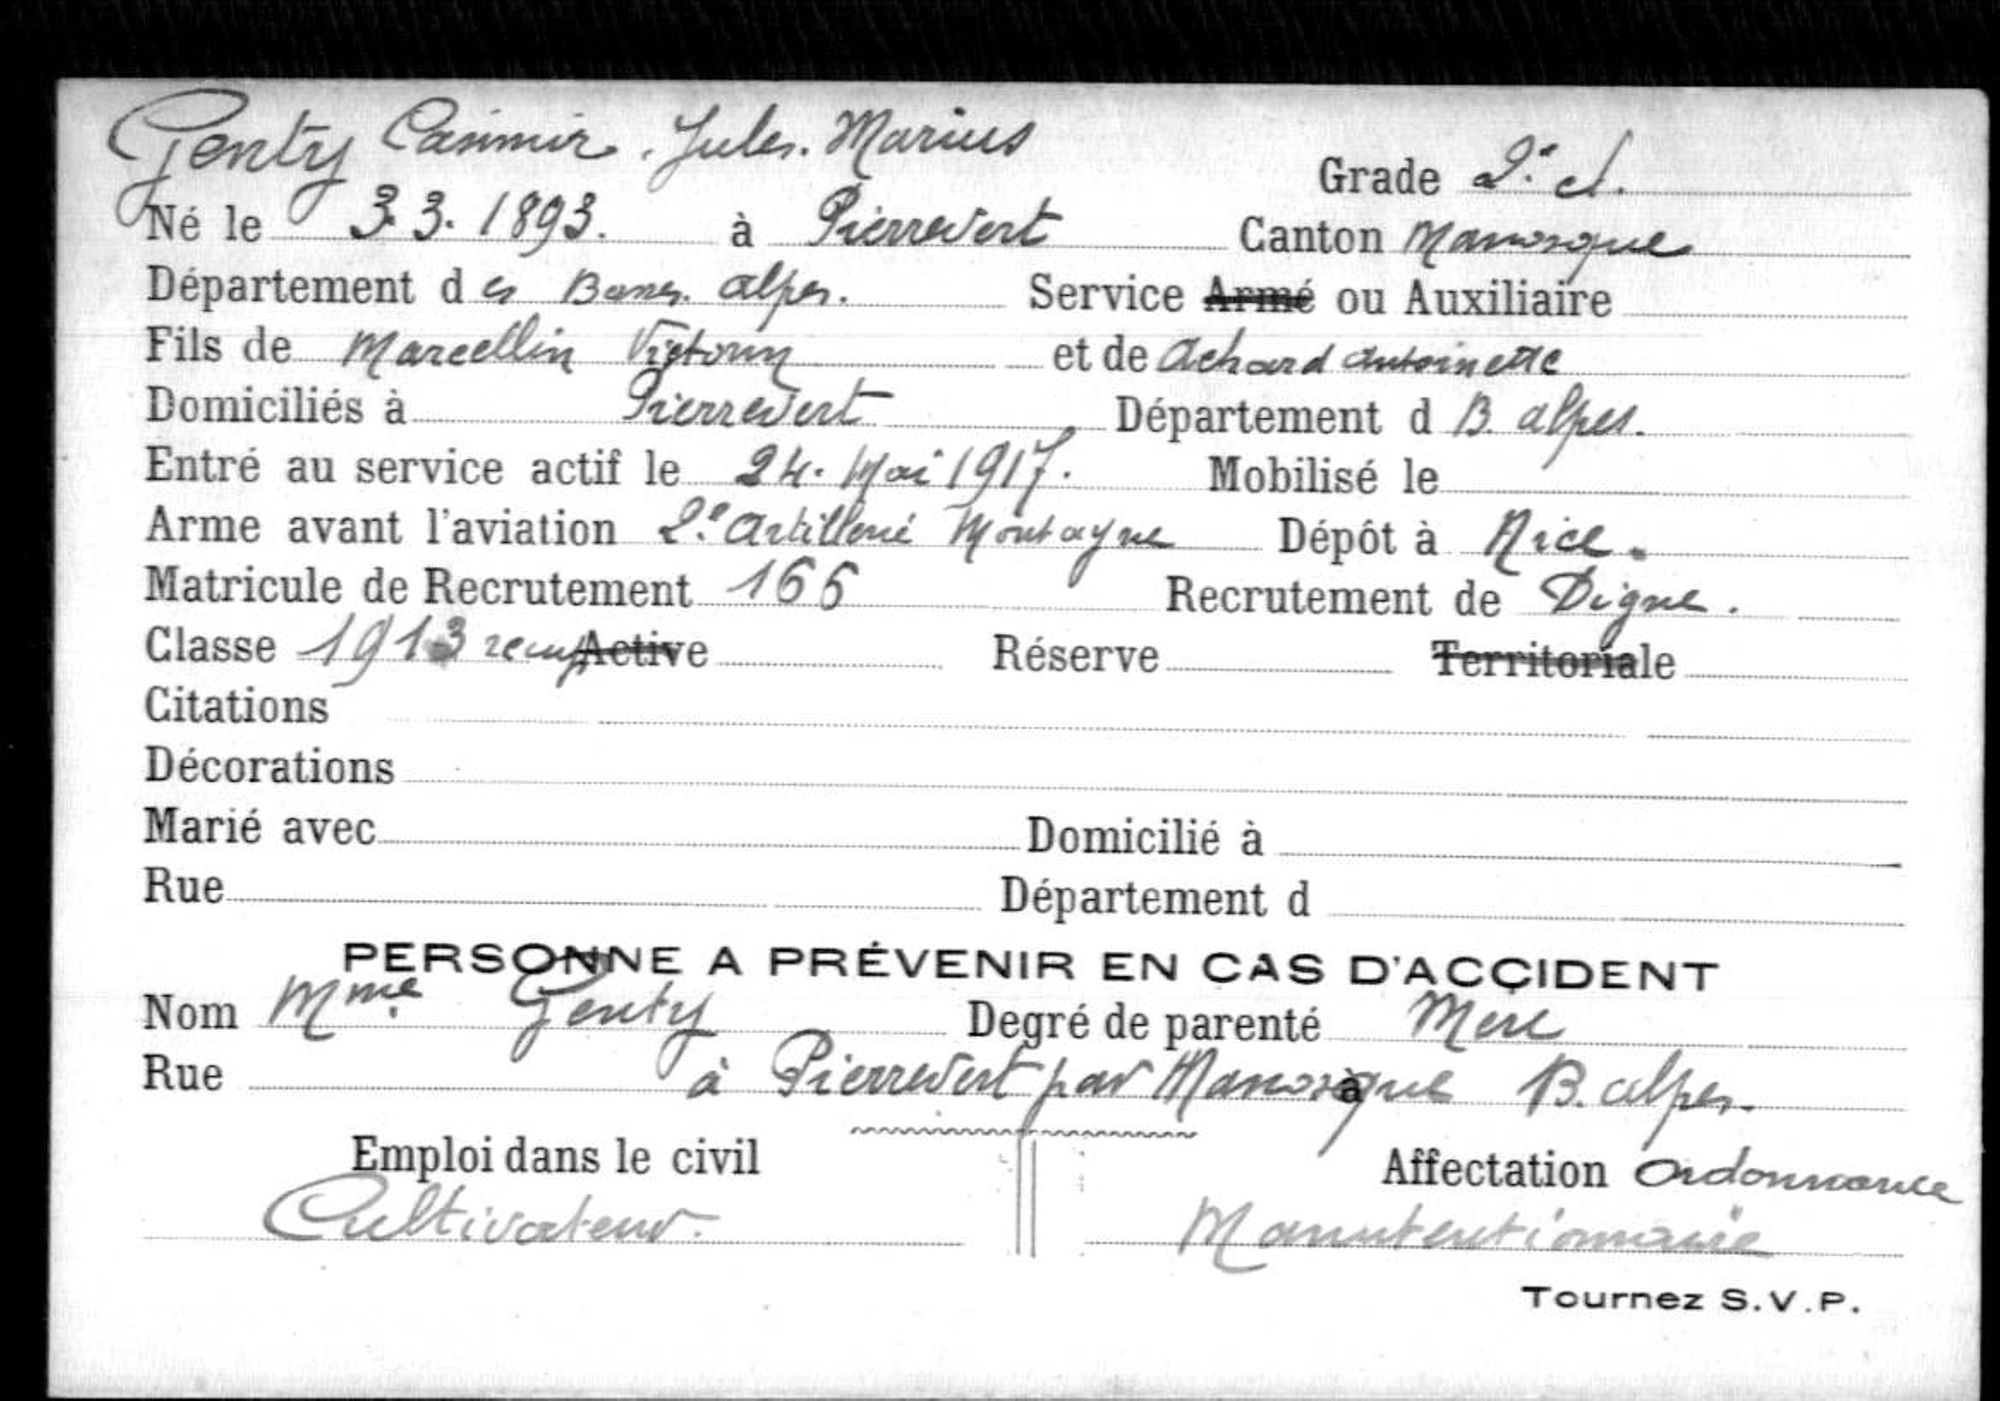 Genty Casimir. Jules. Marius
Grade 2e cl.
Né le 3.3.1893. à Pierrevert Canton Manosque
Département des Basses. Alpes. Service Armé ou Auxiliaire
Fils de Marcellin et de Achard Antoinette
Domiciliés à Pierrevert Département d B. Alpes.
Entré au service actif le 24. Mai 1917. Mobilisé le
Arme avant l'aviation 2e Artillerie Montagne Dépôt à Nice.
Matricule de Recrutement 166 Recrutement de Digne.
Classe 1913 Active Réserve Territoriale
Citations
Décorations
Marié avec Domicilié à
Rue Département d
PERSONNE A PRÉVENIR EN CAS D'ACCIDENT
Nom Mme Genty Degré de parenté Mere
Rue à Pierrevert par Manosque B. Alpes.
Emploi dans le civil Affectation Ordonnance
Cultivateur. Manutentionnaire
Tournez S.V.P.